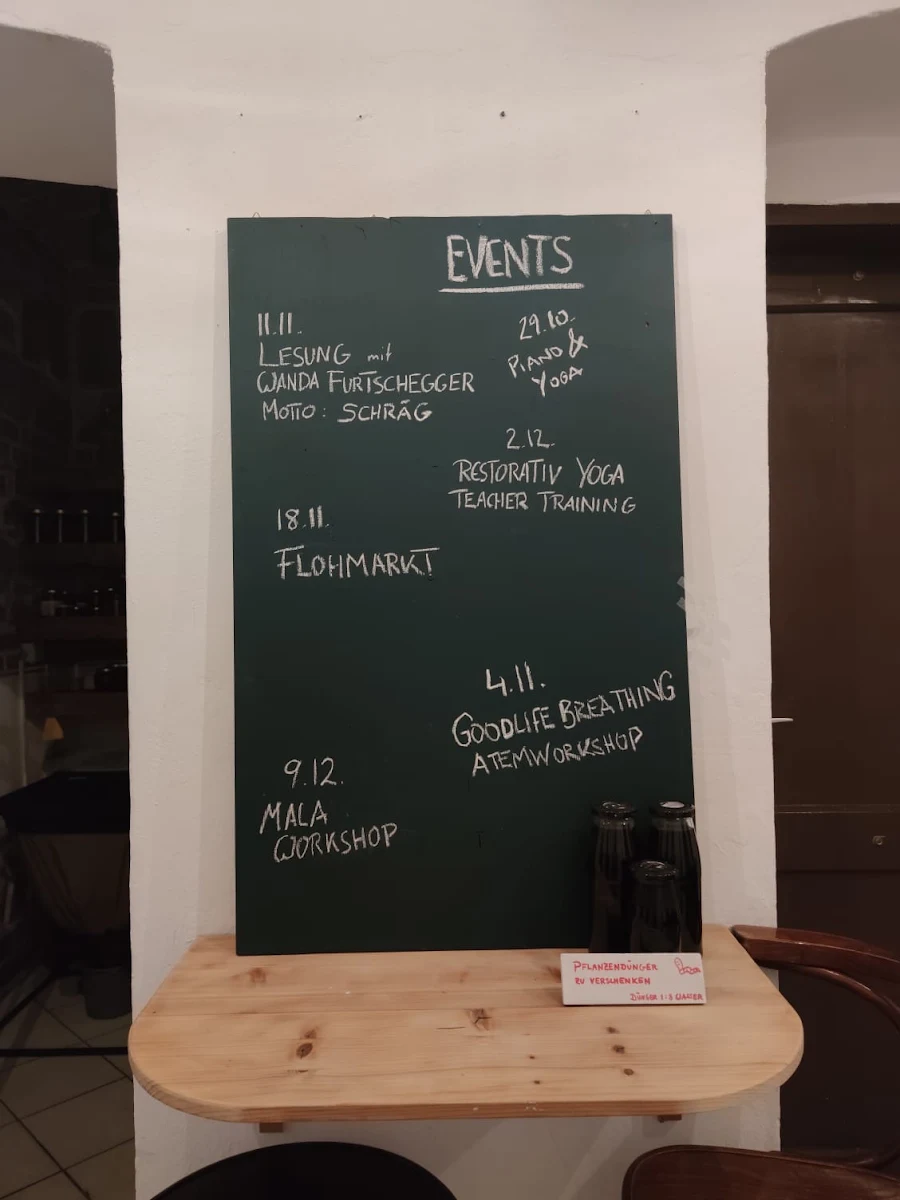 EVENTS
11.11.
LESUNG mit
WANDA FURTSCHEGGER
MOTTO: SCHRÄG
18.11.
FLOHMARKT
9.12.
MALA
WORKSHOP
29.10.
PIANO &
YOGA
2.12.
RESTORATIV YOGA
TEACHER TRAINING
4.11.
GOODLIFE BREATHING
ATEMWORKSHOP
PFLANZENDÜNGER
ZU VERSCHENKEN
DÜNGER 1:3 WASSER